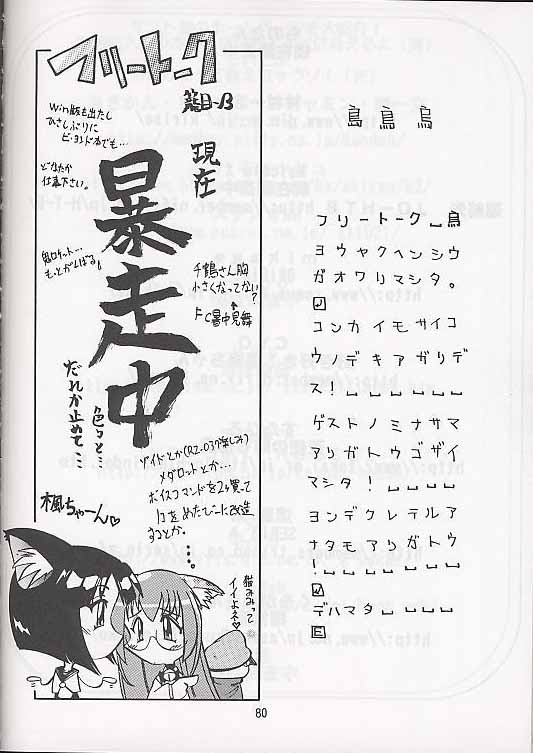 フリートーク
籠目-B
Win版も出たし
ひさしぶりに
ビ・ヨンド本でも…
どなたか
仕事下さい。
鬼ロケット…
もっとがんばる。
現在
暴走中
色々と…
だれか止めて…
千鶴さん胸
小さくなってない？
↑
FC暑中見舞
ゾイドとか(RZ-037楽しみ)
メダロットとか…
ボイスコマンドを2ヶ買って
1コをめたびーに改造
するとか。
…。
楓ちゃーん♡
猫みみって
イイよネ♡
鳥 鳥 鳥
フリートーク␣鳥
ヨウヤクヘンシウ
ガオワリマシタ。
コンカイモサイコ
ウノデキアガリデ
ス！␣␣␣␣␣␣
ゲストノミナサマ
アリガトウゴザイ
マシタ！␣␣␣␣
ヨンデクレテルア
ナタモアリガトウ
！␣␣␣␣␣␣␣
デハマタ␣␣␣␣
80